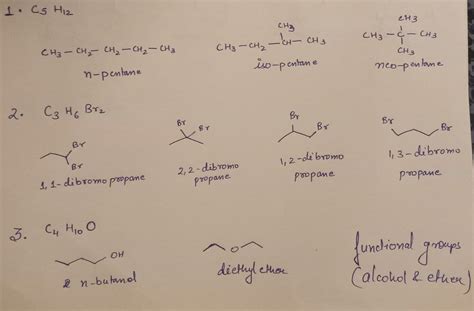 1. C5 H12
CH3
CH3 – CH2 – CH2 – CH2 – CH3
n-pentane
CH3 – CH2 – CH – CH3
iso-pentane
CH3
CH3 – C – CH3
CH3
neo-pentane
2. C3 H6 Br2
Br
Br
1,1-dibromo propane
Br
Br
2,2-dibromo
propane
Br
Br
1,2-dibromo
propane
Br
Br
1,3-dibromo
propane
3. C4 H10 O
OH
n-butanol
O
diethyl ether
functional groups
(alcohol & ether)